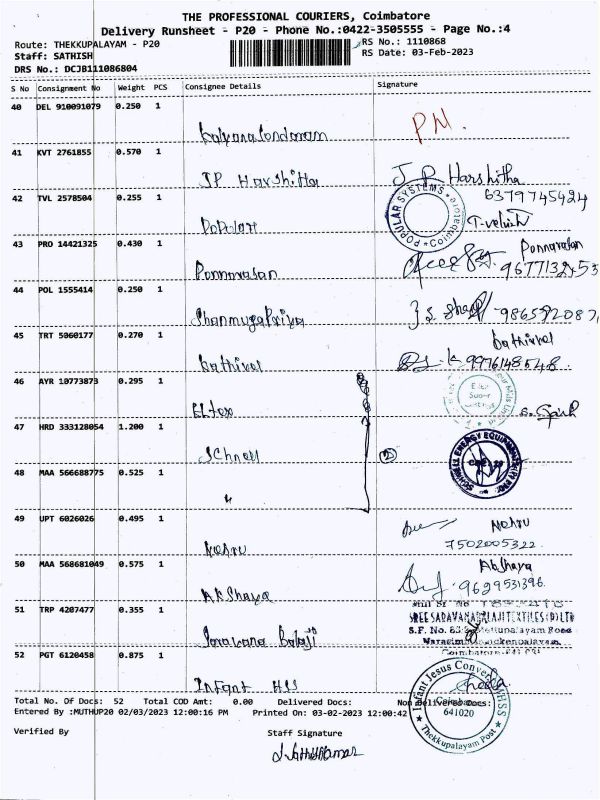 THE PROFESSIONAL COURIERS, Coimbatore
Delivery Runsheet - P20 - Phone No.:0422-3505555 - Page No.:4
Route: THEKKUPALAYAM - P20
RS No.: 1110868
Staff: SATHISH
RS Date: 03-Feb-2023
DRS No.: DCJB111086804
S No Consignment No Weight PCS Consignee Details Signature
40 DEL 910091079 0.250 1
P N.
41 KVT 2761855 0.570 1
JP Harshitha
J P Harshitha
6379745424
42 TVL 2578504 0.255 1
Popular
POPULAR SYSTEMS Coimbatore
43 PRO 14421325 0.430 1
Ponnarasan
Ponnarasan
44 POL 1555414 0.250 1
Shanmugapriya
45 TRT 5060177 0.270 1
Kathirvel
Kathirvel
9976148548
46 AYR 10773873 0.295 1
Eltex
47 HRD 333128054 1.200 1
Schnell
2
SCHNELL ENERGY EQUIPMENTS
48 MAA 566688775 0.525 1
"
49 UPT 6026026 0.495 1
Nehru
Nehru
7502005322
50 MAA 568681049 0.575 1
Akshaya
Akshaya
9629531396
51 TRP 4207477 0.355 1
Saravana Balaji
SREE SARAVANABALAJI TEXTILES (P) LTD
S.F. No.
52 PGT 6120458 0.875 1
Infant HSS
Infant Jesus Convent MHSS
Coimbatore
641020
Thekkupalayam Post
Total No. Of Docs: 52 Total COD Amt: 0.00 Delivered Docs: Non Delivered Docs:
Entered By :MUTHUP20 02/03/2023 12:00:16 PM Printed On: 03-02-2023 12:00:42
Verified By Staff Signature